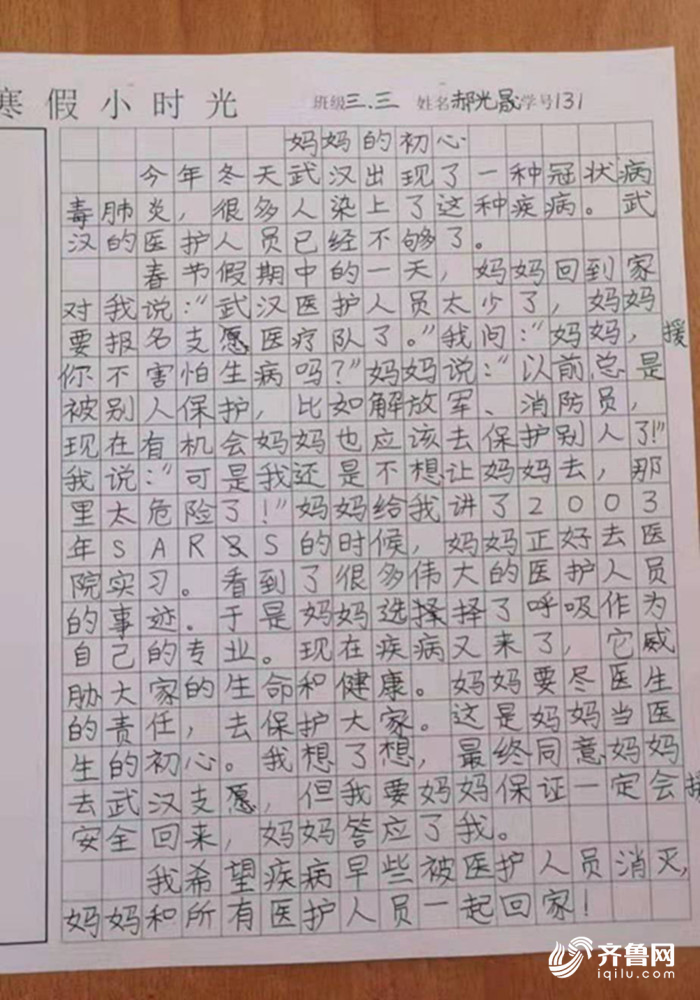 寒假小时光 班级三.三 姓名郝光晟学号131
妈妈的初心
今年冬天武汉出现了一种冠状病
毒肺炎，很多人染上了这种疾病。武
汉的医护人员已经不够了。
春节假期中的一天，妈妈回到家
对我说：“武汉医护人员太少了，妈妈
要报名支愿医疗队了。”我问：“妈妈，援
你不害怕生病吗？”妈妈说：“以前总是
被别人保护，比如解放军、消防员，
现在有机会妈妈也应该去保护别人了！”
我说：“可是我还是不想让妈妈去，那
里太危险了！”妈妈给我讲了2003
年SARS的时候，妈妈正好去医
院实习。看到了很多伟大的医护人员
的事迹．于是妈妈选择择了呼吸作为
自己的专业。现在疾病又来了，它威
胁大家的生命和健康。妈妈要尽医生
的责任，去保护大家。这是妈妈当医
生的初心。我想了想，最终同意妈妈
去武汉支愿，但我要妈妈保证一定会援
安全回来，妈妈答应了我。
我希望疾病早些被医护人员消灭，
妈妈和所有医护人员一起回家！
齐鲁网
iqilu.com